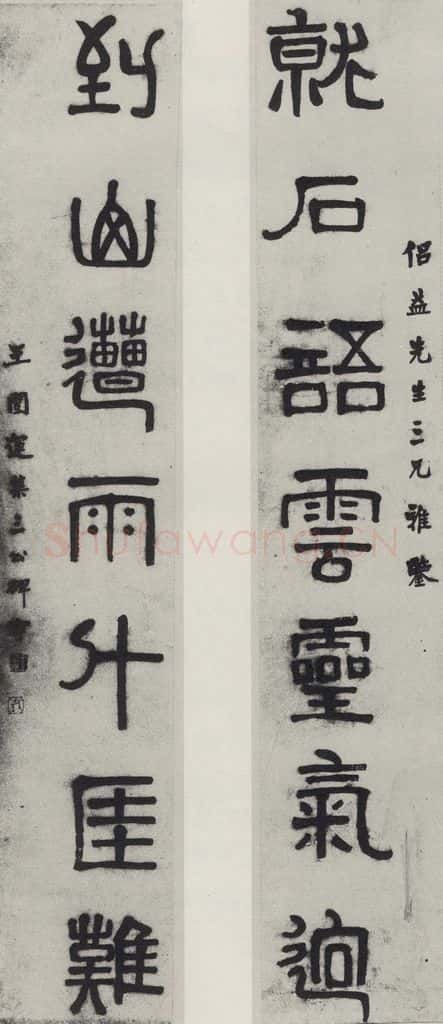 侣益先生三兄雅鑒
就石語雲靈氣迥
到山遭雨升厓難
王闓運集三公碑字
Shufawang.CN